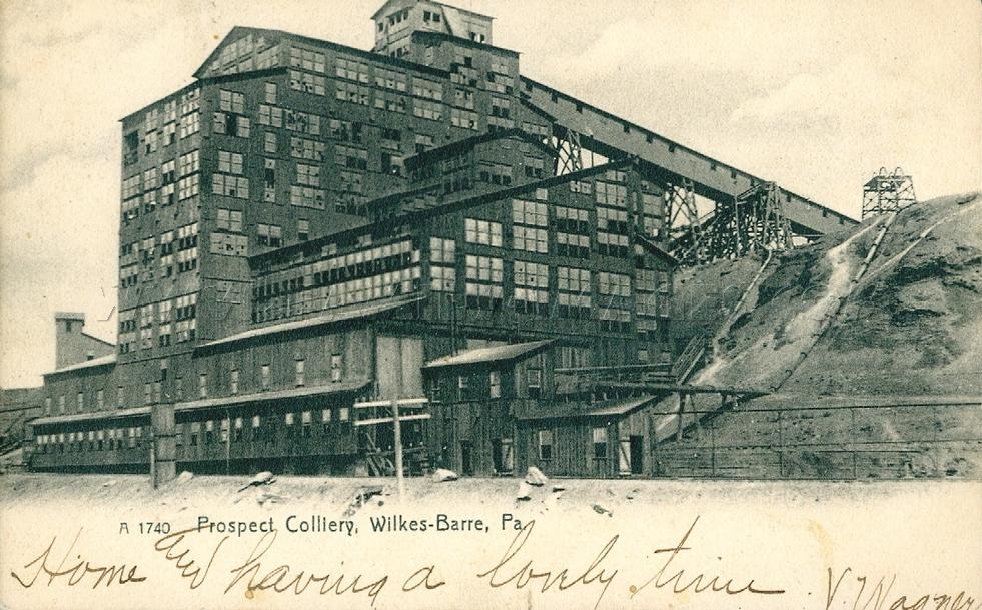 A 1740 Prospect Colliery, Wilkes-Barre, Pa.
Home and having a lovely time V. Wagner